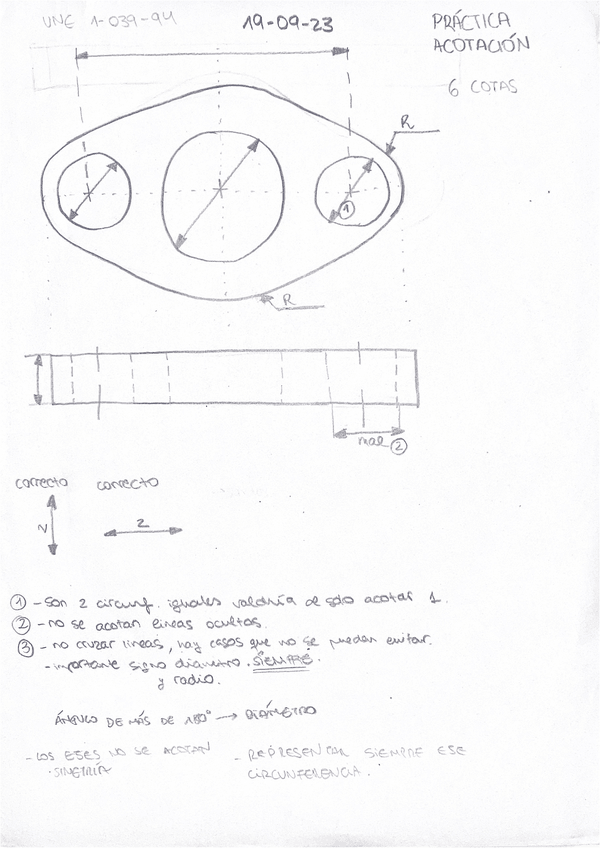 UNE 1-039-94
19-09-23
PRÁCTICA
ACOTACIÓN
6 COTAS
R
1
R
mal 2
correcto correcto
2
2
1 - son 2 circunf. iguales valdría de sólo acotar 1.
2 - no se acotan líneas ocultas.
3 - no cruzar líneas, hay casos que no se puedan evitar.
- importante signo diámetro. SIEMPRE.
y radio.
ÁNGULO DE MÁS DE 180° → DIÁMETRO
- LOS EJES NO SE ACOTAN
· SIMETRÍA
- REPRESENTAR SIEMPRE ESE
CIRCUNFERENCIA.